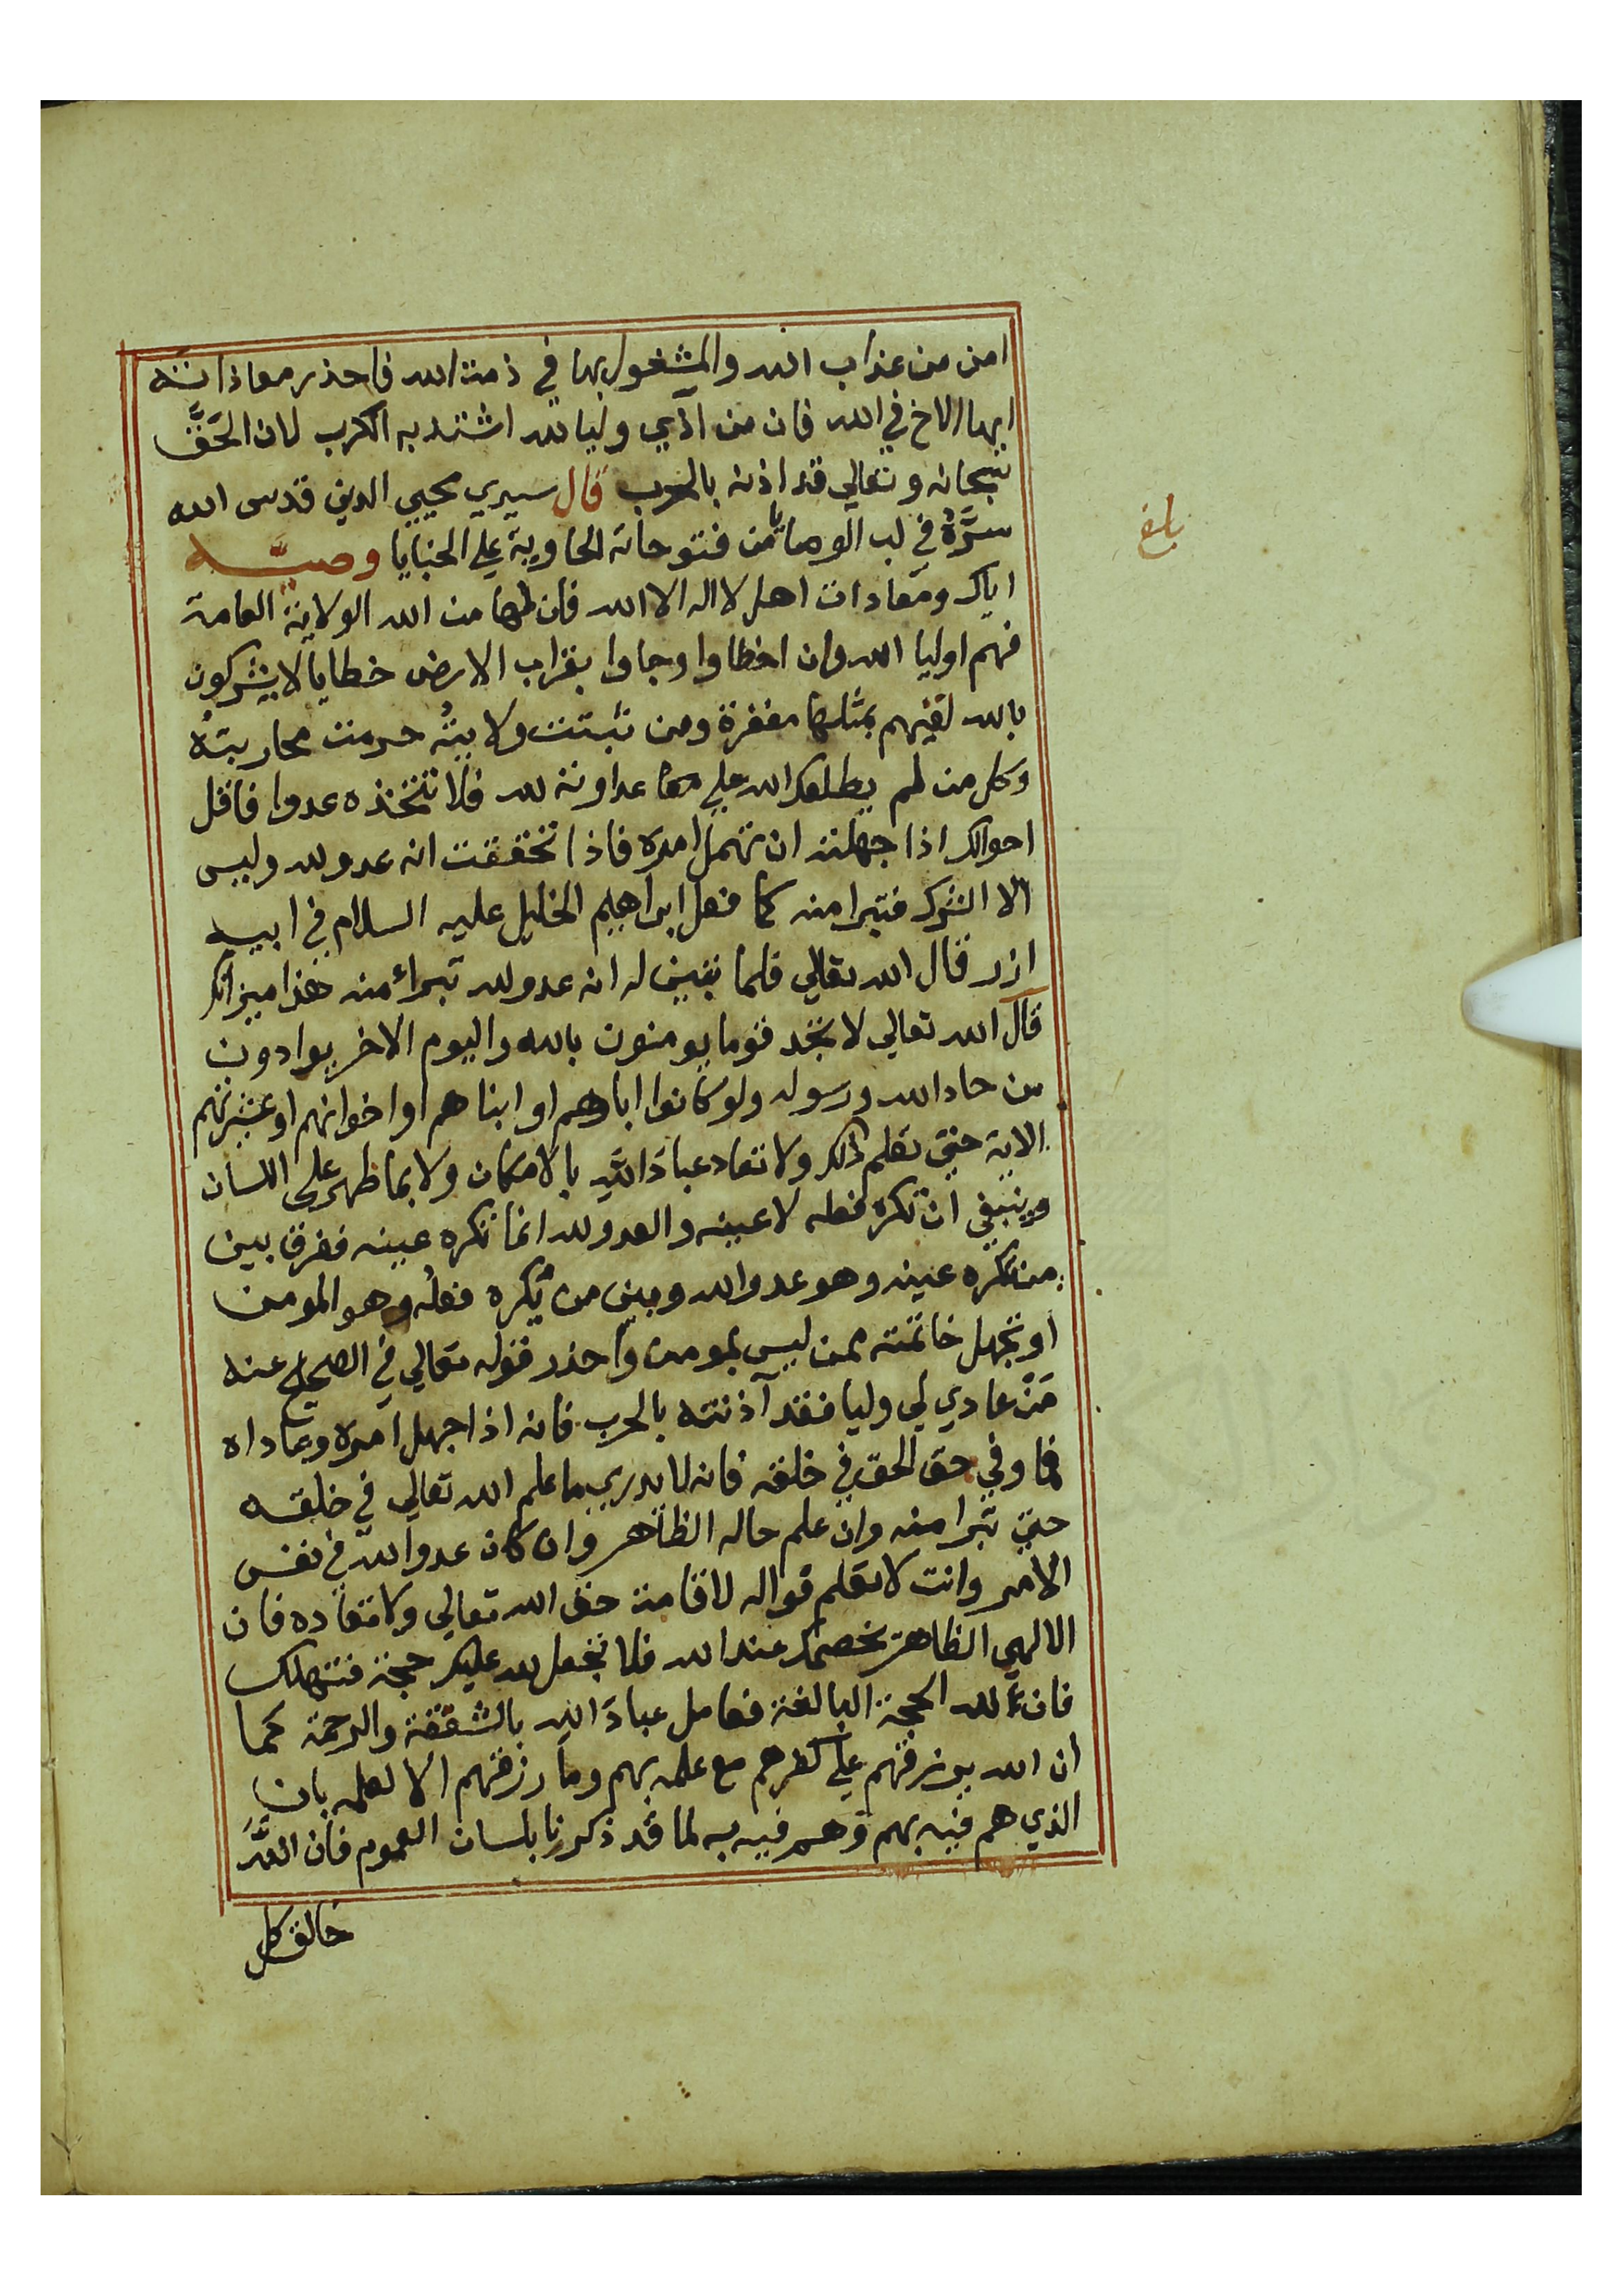 امن من عذاب الله والمشغول بها في ذمت الله فاحذر معاذاته
ايها الاخ في الله فان من اذي وليا لله اشتد به الكرب لان الحَقَّ
سبحانه وتعالي قد اذنه بالحرب قال سيدي محيي الدين قدس الله
سرَّهُ في لب الوصايا من فتوحاته الحاوية علي الخبايا وصيَّه
اياك ومعادات اهل لا اله الا الله فان لها من الله الولاية العامة
فهم اوليا الله وان اخطاوا وجاوا بقراب الارض خطايا لا يشركون
بالله لقيهم بمثلها مغفرة ومن ثبتت ولايتُه حرمت محاربتُه
وكل من لم يطلعك الله علي عداوته لله فلا تتخذه عدوا فاقل
احوالك اذا جهلته ان تهمل امره فاذا تحققت انه عدو لله وليس
الا الشرك فتبرا منه كما فعل ابراهيم الخليل عليه السلام في ابيه
ازر قال الله تعالي فلما تبين له انه عدو لله تبراء منه هذا ميزانك
قال الله تعالي لا تجد قوما يومنون بالله واليوم الاخر يوادون
من حاد الله ورسوله ولو كانوا اباوهم او ابناهم او اخوانهم او عشيرتهم
الاية حتي تعلم ذلك ولا تعاد عبادَ اللهِ بالامكان ولا بما ظهر علي اللسان
وينبغي ان تكره فعله لا عينه والعدو لله انما تكره عينه ففرق بين
من تكره عينه وهو عدو الله وبين من تكره فعلُه وهو المومن
او تجهل خاتمته ممن ليس بمومن واحذر قوله تعالي في الصحيح عنه
مَنْ عادي لي وليا فقد آذنته بالحرب فانه اذا جهل امره وعاداه
فما وفي حق الحق في خلقه فانه لا يدري ما علم الله تعالي في خلقه
حتي تبرا منه وان علم حاله الظاهر وان كان عدوا لله في نفس
الامر وانت لا تعلم فواله لاقامة حق الله تعالي ولا تعاده فان
الالهي الظاهر يخصمك عند الله فلا تجعل لله عليك حجة فتهلك
فان لله الحجة البالغة فعامل عبادَ اللهِ بالشفقة والرحمة كما
ان الله يرزقهم علي كفرهم مع علمه بهم وما رزقهم الا لعلمه بان
الذي هم فيه بهم وهم فيه به لما قد ذكرنا بلسان العموم فان اللهَ
خالق كل
بلغ